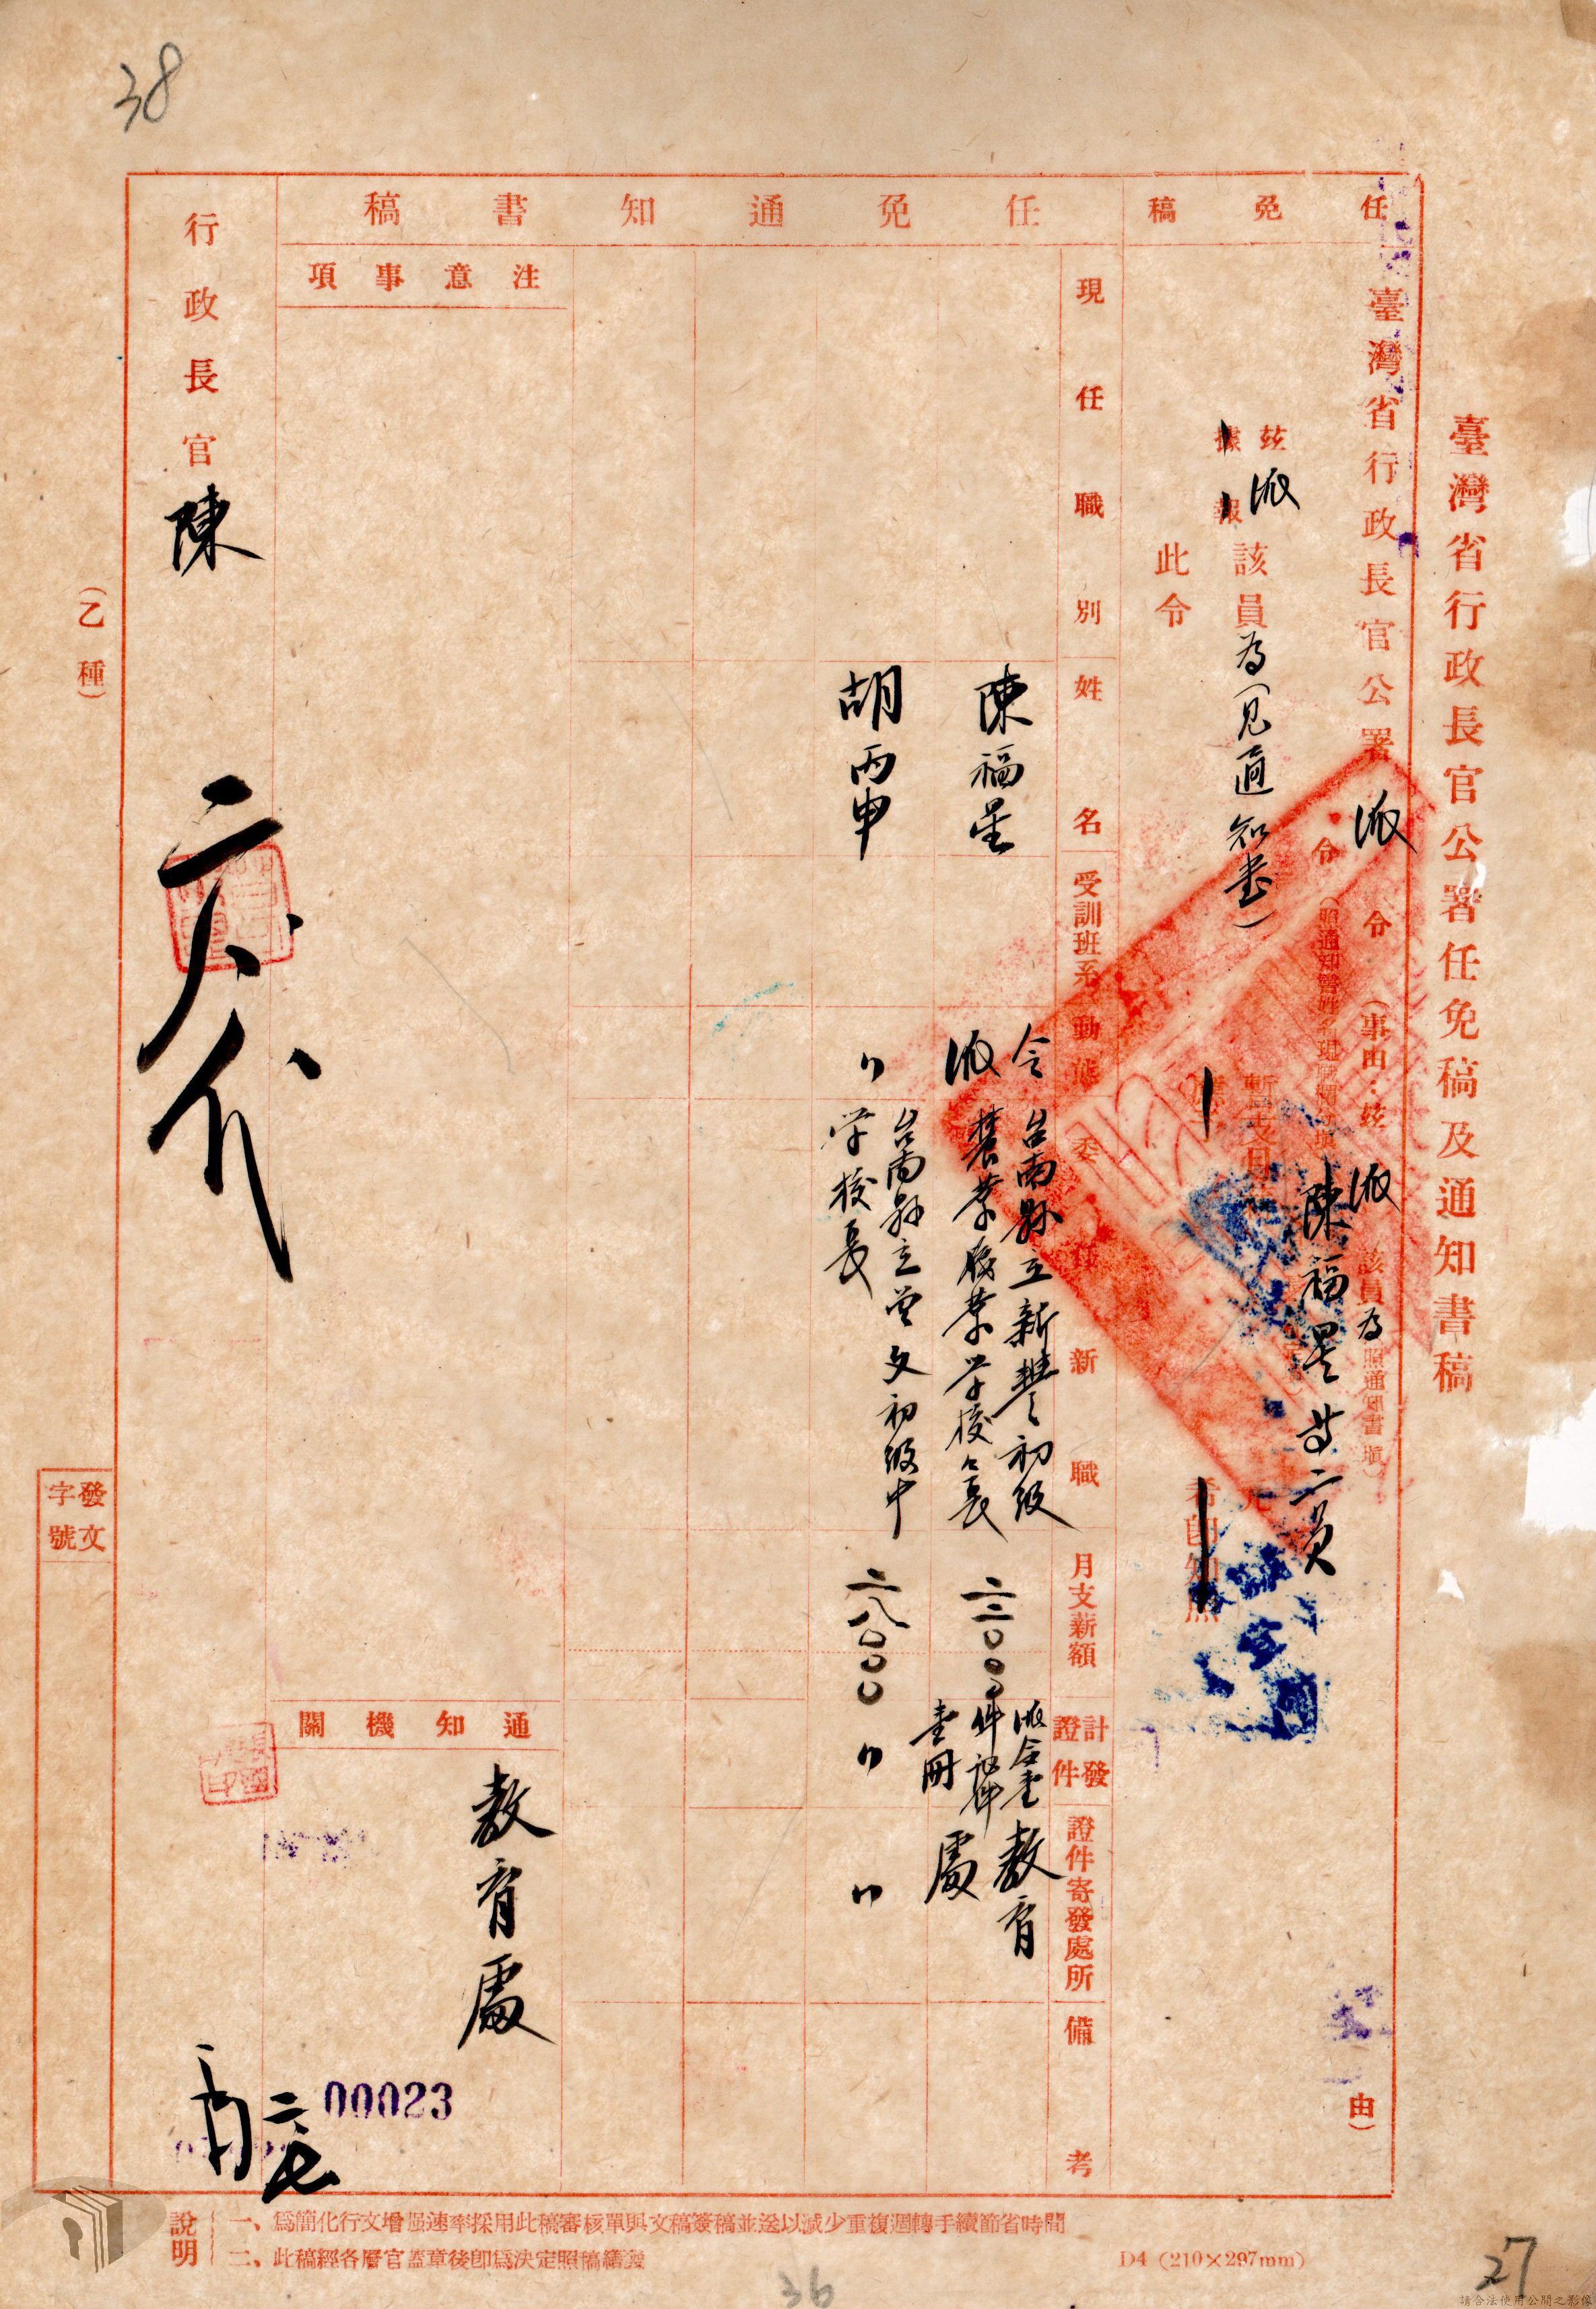 38
臺灣省行政長官公署任免稿及通知書稿
任免稿
臺灣省行政長官公署派令（事由：茲派該員為照通知書填）
由）
令（照通知書姓名現職欄填）陳福星等二員
茲派該員為（見通知書）
據報
暫支月
希即知照
此令
任免通知書稿
現任職別
姓名
受訓班系
動態
委任新職
月支薪額
計發證件
證件寄發處所
備考
陳福星
令派
台南縣立新豐初級
農業職業學校校長
三二〇〇〇
派令壹件
壹冊
教育處
胡丙申
〃
台南縣立曾文初級中
学校長
二八〇〇〇
〃
〃
注意事項
通知機關
教育處
00023
行政長官陳
（乙種）
發文字號
說明
一、爲簡化行文增强速率採用此稿審核單與文稿簽稿並送以減少重復週轉手續節省時間
二、此稿經各層官蓋章後即爲決定照稿繕發
D4（210×297mm）
36
27
請合法使用公開之影像